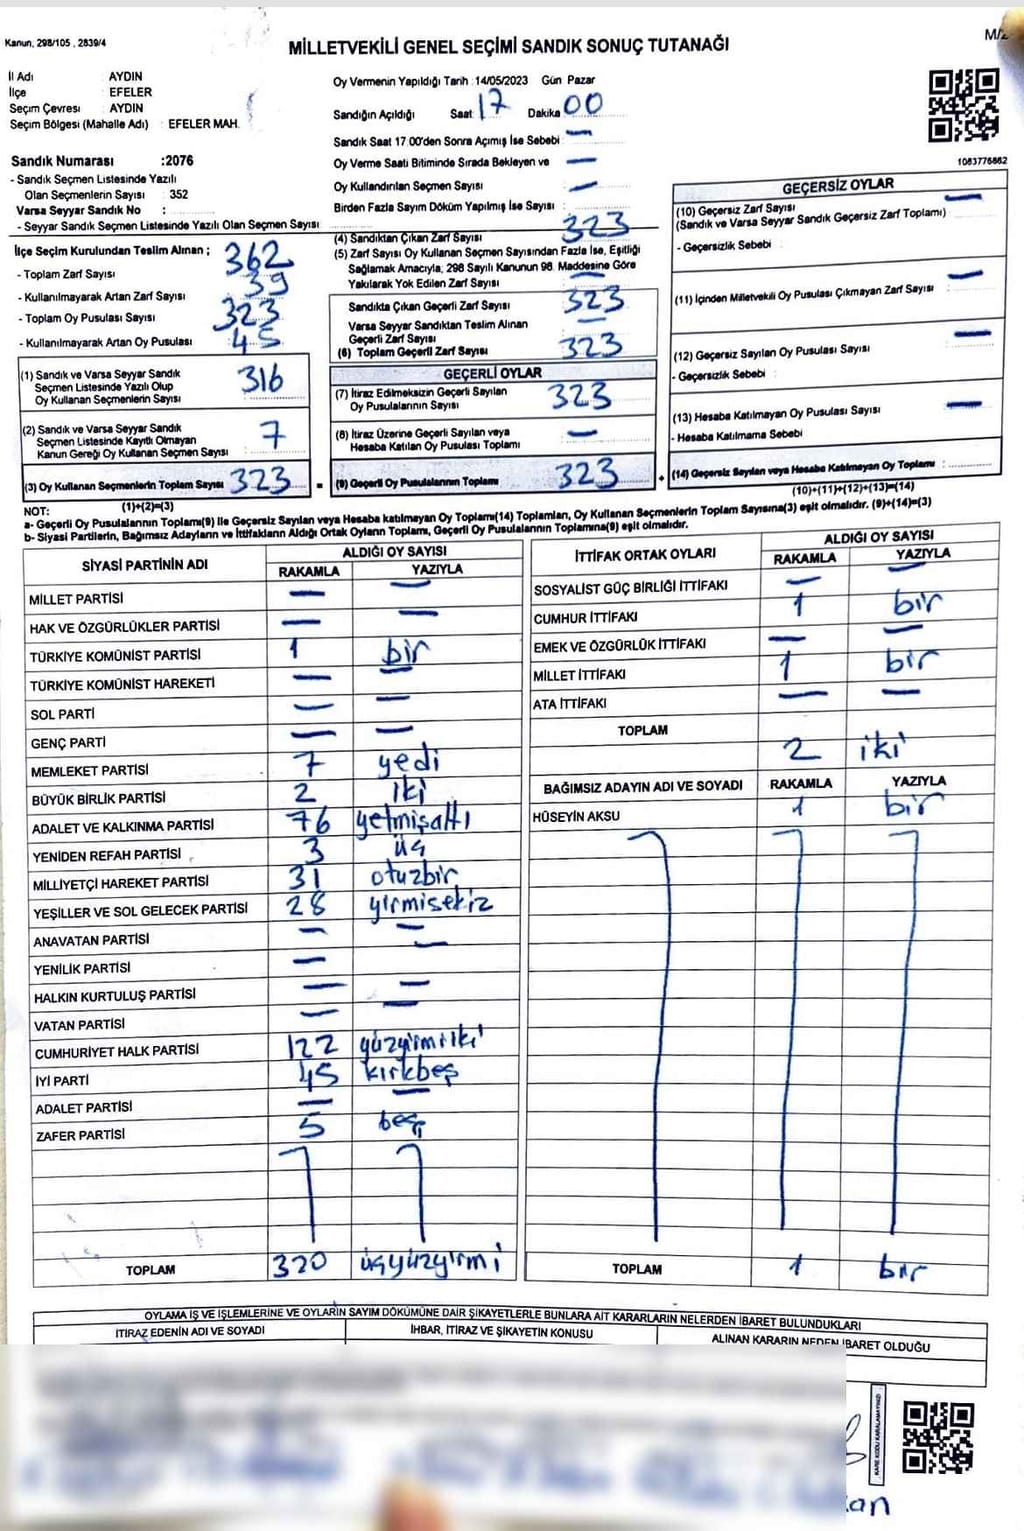 Kanun, 298/105 , 2839/4
MİLLETVEKİLİ GENEL SEÇİMİ SANDIK SONUÇ TUTANAĞI
İl Adı : AYDIN
İlçe : EFELER
Seçim Çevresi : AYDIN
Seçim Bölgesi (Mahalle Adı) : EFELER MAH.
Sandık Numarası :2076
- Sandık Seçmen Listesinde Yazılı
Olan Seçmenlerin Sayısı : 352
Varsa Seyyar Sandık No :
- Seyyar Sandık Seçmen Listesinde Yazılı Olan Seçmen Sayısı
Oy Vermenin Yapıldığı Tarih :14/05/2023 Gün Pazar
Sandığın Açıldığı Saat: 17 Dakika: 00
Sandık Saat 17.00'den Sonra Açımış İse Sebebi : —
Oy Verme Saati Bitiminde Sırada Bekleyen ve —
Oy Kullandırılan Seçmen Sayısı : —
Birden Fazla Sayım Döküm Yapılmış İse Sayısı :
1083776662
İlçe Seçim Kurulundan Teslim Alınan ;
- Toplam Zarf Sayısı : 362
- Kullanılmayarak Artan Zarf Sayısı : 39
- Toplam Oy Pusulası Sayısı : 323
- Kullanılmayarak Artan Oy Pusulası : 45
(1) Sandık ve Varsa Seyyar Sandık
Seçmen Listesinde Yazılı Olup
Oy Kullanan Seçmenlerin Sayısı : 316
(2) Sandık ve Varsa Seyyar Sandık
Seçmen Listesinde Kayıtlı Olmayan
Kanun Gereği Oy Kullanan Seçmen Sayısı : 7
(3) Oy Kullanan Seçmenlerin Toplam Sayısı : 323
(1)+(2)=(3)
(4) Sandıktan Çıkan Zarf Sayısı : 323
(5) Zarf Sayısı Oy Kullanan Seçmen Sayısından Fazla İse, Eşitliği
Sağlamak Amacıyla; 298 Sayılı Kanunun 98. Maddesine Göre
Yakılarak Yok Edilen Zarf Sayısı : —
Sandıkta Çıkan Geçerli Zarf Sayısı : 323
Varsa Seyyar Sandıktan Teslim Alınan
Geçerli Zarf Sayısı : —
(6) Toplam Geçerli Zarf Sayısı : 323
GEÇERLİ OYLAR
(7) İtiraz Edilmeksizin Geçerli Sayılan
Oy Pusulalarının Sayısı : 323
(8) İtiraz Üzerine Geçerli Sayılan veya
Hesaba Katılan Oy Pusulası Toplamı : —
(9) Geçerli Oy Pusulalarının Toplamı : 323
GEÇERSİZ OYLAR
(10) Geçersiz Zarf Sayısı : —
(Sandık ve Varsa Seyyar Sandık Geçersiz Zarf Toplamı)
- Geçersizlik Sebebi :
(11) İçinden Milletvekili Oy Pusulası Çıkmayan Zarf Sayısı : —
(12) Geçersiz Sayılan Oy Pusulası Sayısı : —
- Geçersizlik Sebebi :
(13) Hesaba Katılmayan Oy Pusulası Sayısı : —
- Hesaba Katılmama Sebebi :
(14) Geçersiz Sayılan veya Hesaba Katılmayan Oy Toplamı :
(10)+(11)+(12)+(13)=(14)
NOT:
a- Geçerli Oy Pusulalarının Toplamı(9) ile Geçersiz Sayılan veya Hesaba katılmayan Oy Toplamı(14) Toplamları, Oy Kullanan Seçmenlerin Toplam Sayısına(3) eşit olmalıdır. (9)+(14)=(3)
b- Siyasi Partilerin, Bağımsız Adayların ve İttifakların Aldığı Ortak Oyların Toplamı, Geçerli Oy Pusulalarının Toplamına(9) eşit olmalıdır.
SİYASİ PARTİNİN ADI ALDIĞI OY SAYISI
RAKAMLA YAZIYLA
MİLLET PARTİSİ — —
HAK VE ÖZGÜRLÜKLER PARTİSİ — —
TÜRKİYE KOMÜNİST PARTİSİ 1 bir
TÜRKİYE KOMÜNİST HAREKETİ — —
SOL PARTİ — —
GENÇ PARTİ — —
MEMLEKET PARTİSİ 7 yedi
BÜYÜK BİRLİK PARTİSİ 2 iki
ADALET VE KALKINMA PARTİSİ 76 yetmişaltı
YENİDEN REFAH PARTİSİ 3 üç
MİLLİYETÇİ HAREKET PARTİSİ 31 otuzbir
YEŞİLLER VE SOL GELECEK PARTİSİ 28 yirmisekiz
ANAVATAN PARTİSİ — —
YENİLİK PARTİSİ — —
HALKIN KURTULUŞ PARTİSİ — —
VATAN PARTİSİ — —
CUMHURİYET HALK PARTİSİ 122 yüzyirmiiki
İYİ PARTİ 45 kırkbeş
ADALET PARTİSİ — —
ZAFER PARTİSİ 5 beş
TOPLAM 320 üçyüzyirmi
İTTİFAK ORTAK OYLARI ALDIĞI OY SAYISI
RAKAMLA YAZIYLA
SOSYALİST GÜÇ BİRLİĞİ İTTİFAKI — —
CUMHUR İTTİFAKI 1 bir
EMEK VE ÖZGÜRLÜK İTTİFAKI — —
MİLLET İTTİFAKI 1 bir
ATA İTTİFAKI — —
TOPLAM 2 iki
BAĞIMSIZ ADAYIN ADI VE SOYADI RAKAMLA YAZIYLA
HÜSEYİN AKSU 1 bir
TOPLAM 1 bir
OYLAMA İŞ VE İŞLEMLERİNE VE OYLARIN SAYIM DÖKÜMÜNE DAİR ŞİKAYETLERLE BUNLARA AİT KARARLARIN NELERDEN İBARET BULUNDUKLARI
İTİRAZ EDENİN ADI VE SOYADI İHBAR, İTİRAZ VE ŞİKAYETİN KONUSU ALINAN KARARIN NEDEN İBARET OLDUĞU
KARE KODU KARALAMAYINIZ!